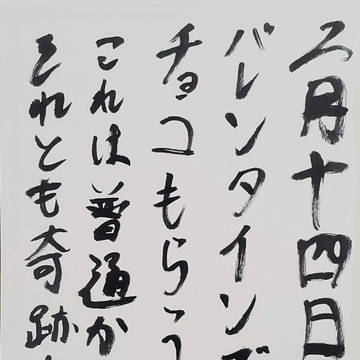 二月十四日
バレンタインデ
チョコもらう
これは普通か
それとも奇跡